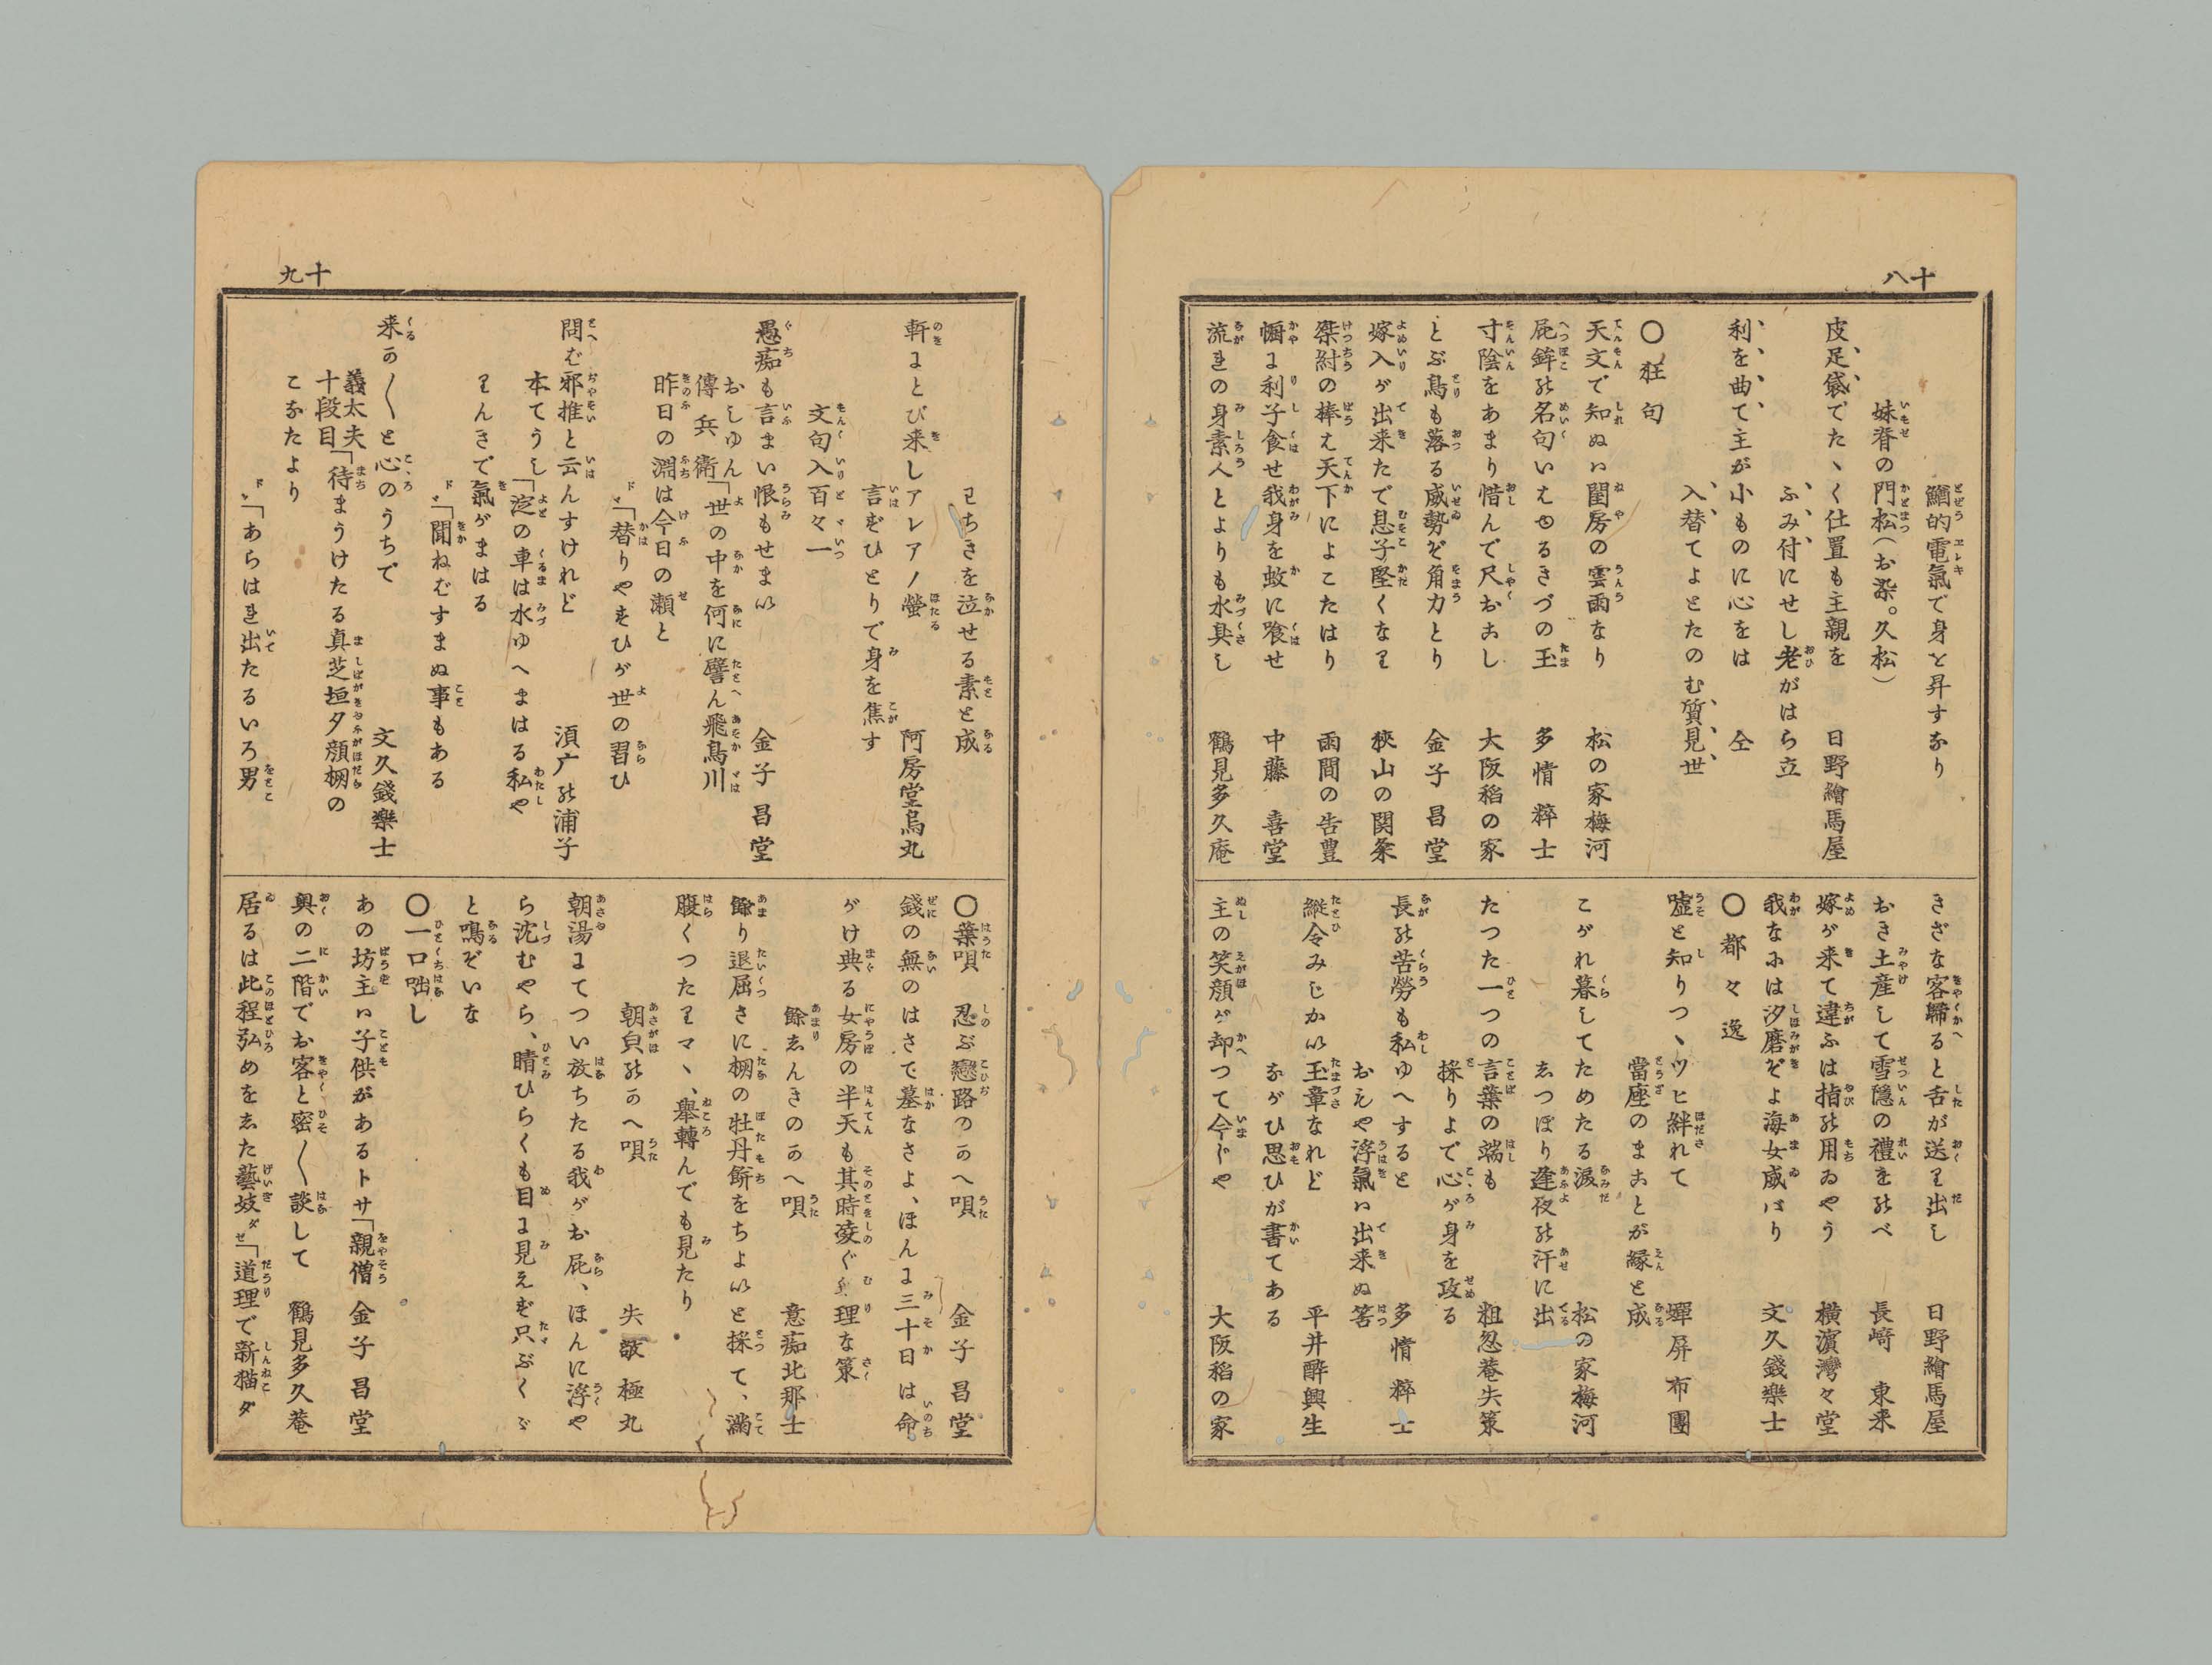 十八
鰌的電氣で身を昇すなり
妹脊の門松(お染。久松)
皮足袋でたゝく仕置も主親を
日野繪馬屋
ふみ付にせし老がはら立
利を曲て主が小ものに心をは
仝
入替てよとたのむ質見世
〇狂句
天文で知れぬハ閨房の雲雨なり
松の家梅河
屁鉾の名句いはゆるきづの玉
多情粹士
寸陰をあまり惜んで尺おなし
大阪稻の家
とぶ鳥も落る威勢ぞ角力とり
金子昌堂
嫁入が出来たで息子堅くなり
狹山の関粂
桀紂の棒は天下によこたはり
雨間の告豊
幮に利子食せ我身を蚊に喰せ
中藤喜堂
流れの身素人とよりも水臭し
鶴見多久庵
きざな客歸ると舌が送り出し
日野繪馬屋
おき土産して雪隠の禮をのべ
長﨑東来
嫁が来て違ふは指の用ゐやう
横濱灣々堂
我なみは汐磨ぞよ海女威バり
文久錢樂士
〇都々逸
嘘と知りつゝツヒ絆れて
蟬屏布團
當座のまことが縁と成
こがれ暮してためたる涙
松の家梅河
ゑつぽり逢夜の汗に出
たつた一つの言葉の端も
粗忽菴失策
採りよで心が身を攻る
長の苦勞も私ゆへすると
多情粹士
おえや浮氣ハ出来ぬ筈
縦令みじかい玉章なれど
平井醉興生
ながひ思ひが書てある
主の笑顔が却つて今じや
大阪稻の家
十九
わちきを泣せる素と成
軒にとび来しアレアノ螢
阿房堂烏丸
言ずひとりで身を焦す
文句入百々一
愚痴も言まい恨もせまい
金子昌堂
おしゆん傳兵衛「世の中を何に譬ん飛鳥川
昨日の淵は今日の瀬と
ドヽ「替りやすひが世の習ひ
問ば邪推と云んすけれど
湏广の浦子
本てうし「淀の車は水ゆへまはる私や
りんきで氣がまはる
ドヽ「聞ねばすまぬ事もある
来か〳〵と心のうちで
文久錢樂士
義太夫十段目「待まうけたる真芝垣夕顔棚の
こなたより
ドヽ「あらはれ出たるいろ男
〇葉唄 忍ぶ戀路のかへ唄
金子昌堂
錢の無のはさて墓なさよ、ほんに三十日は命
がけ典る女房の半天も其時凌ぐ無理な策
餘ゑんきのかへ唄
意痴北那士
餘り退屈さに棚の牡丹餅をちよいと採て、滿
腹くつたりマヽ、舉轉んでも見たり
朝㒵のかへ唄
失敬極丸
朝湯にてつい放ちたる我がお屁、ほんに浮や
ら沈むやら、晴ひらくも目に見えず只ぶくぶ
と鳴ぞいな
〇一口咄し
あの坊主ハ子供があるトサ「親僧
金子昌堂
奥の二階でお客と密〳〵談して
鶴見多久菴
居るは此程弘めをゑた藝妓ダゼ「道理で新猫ダ